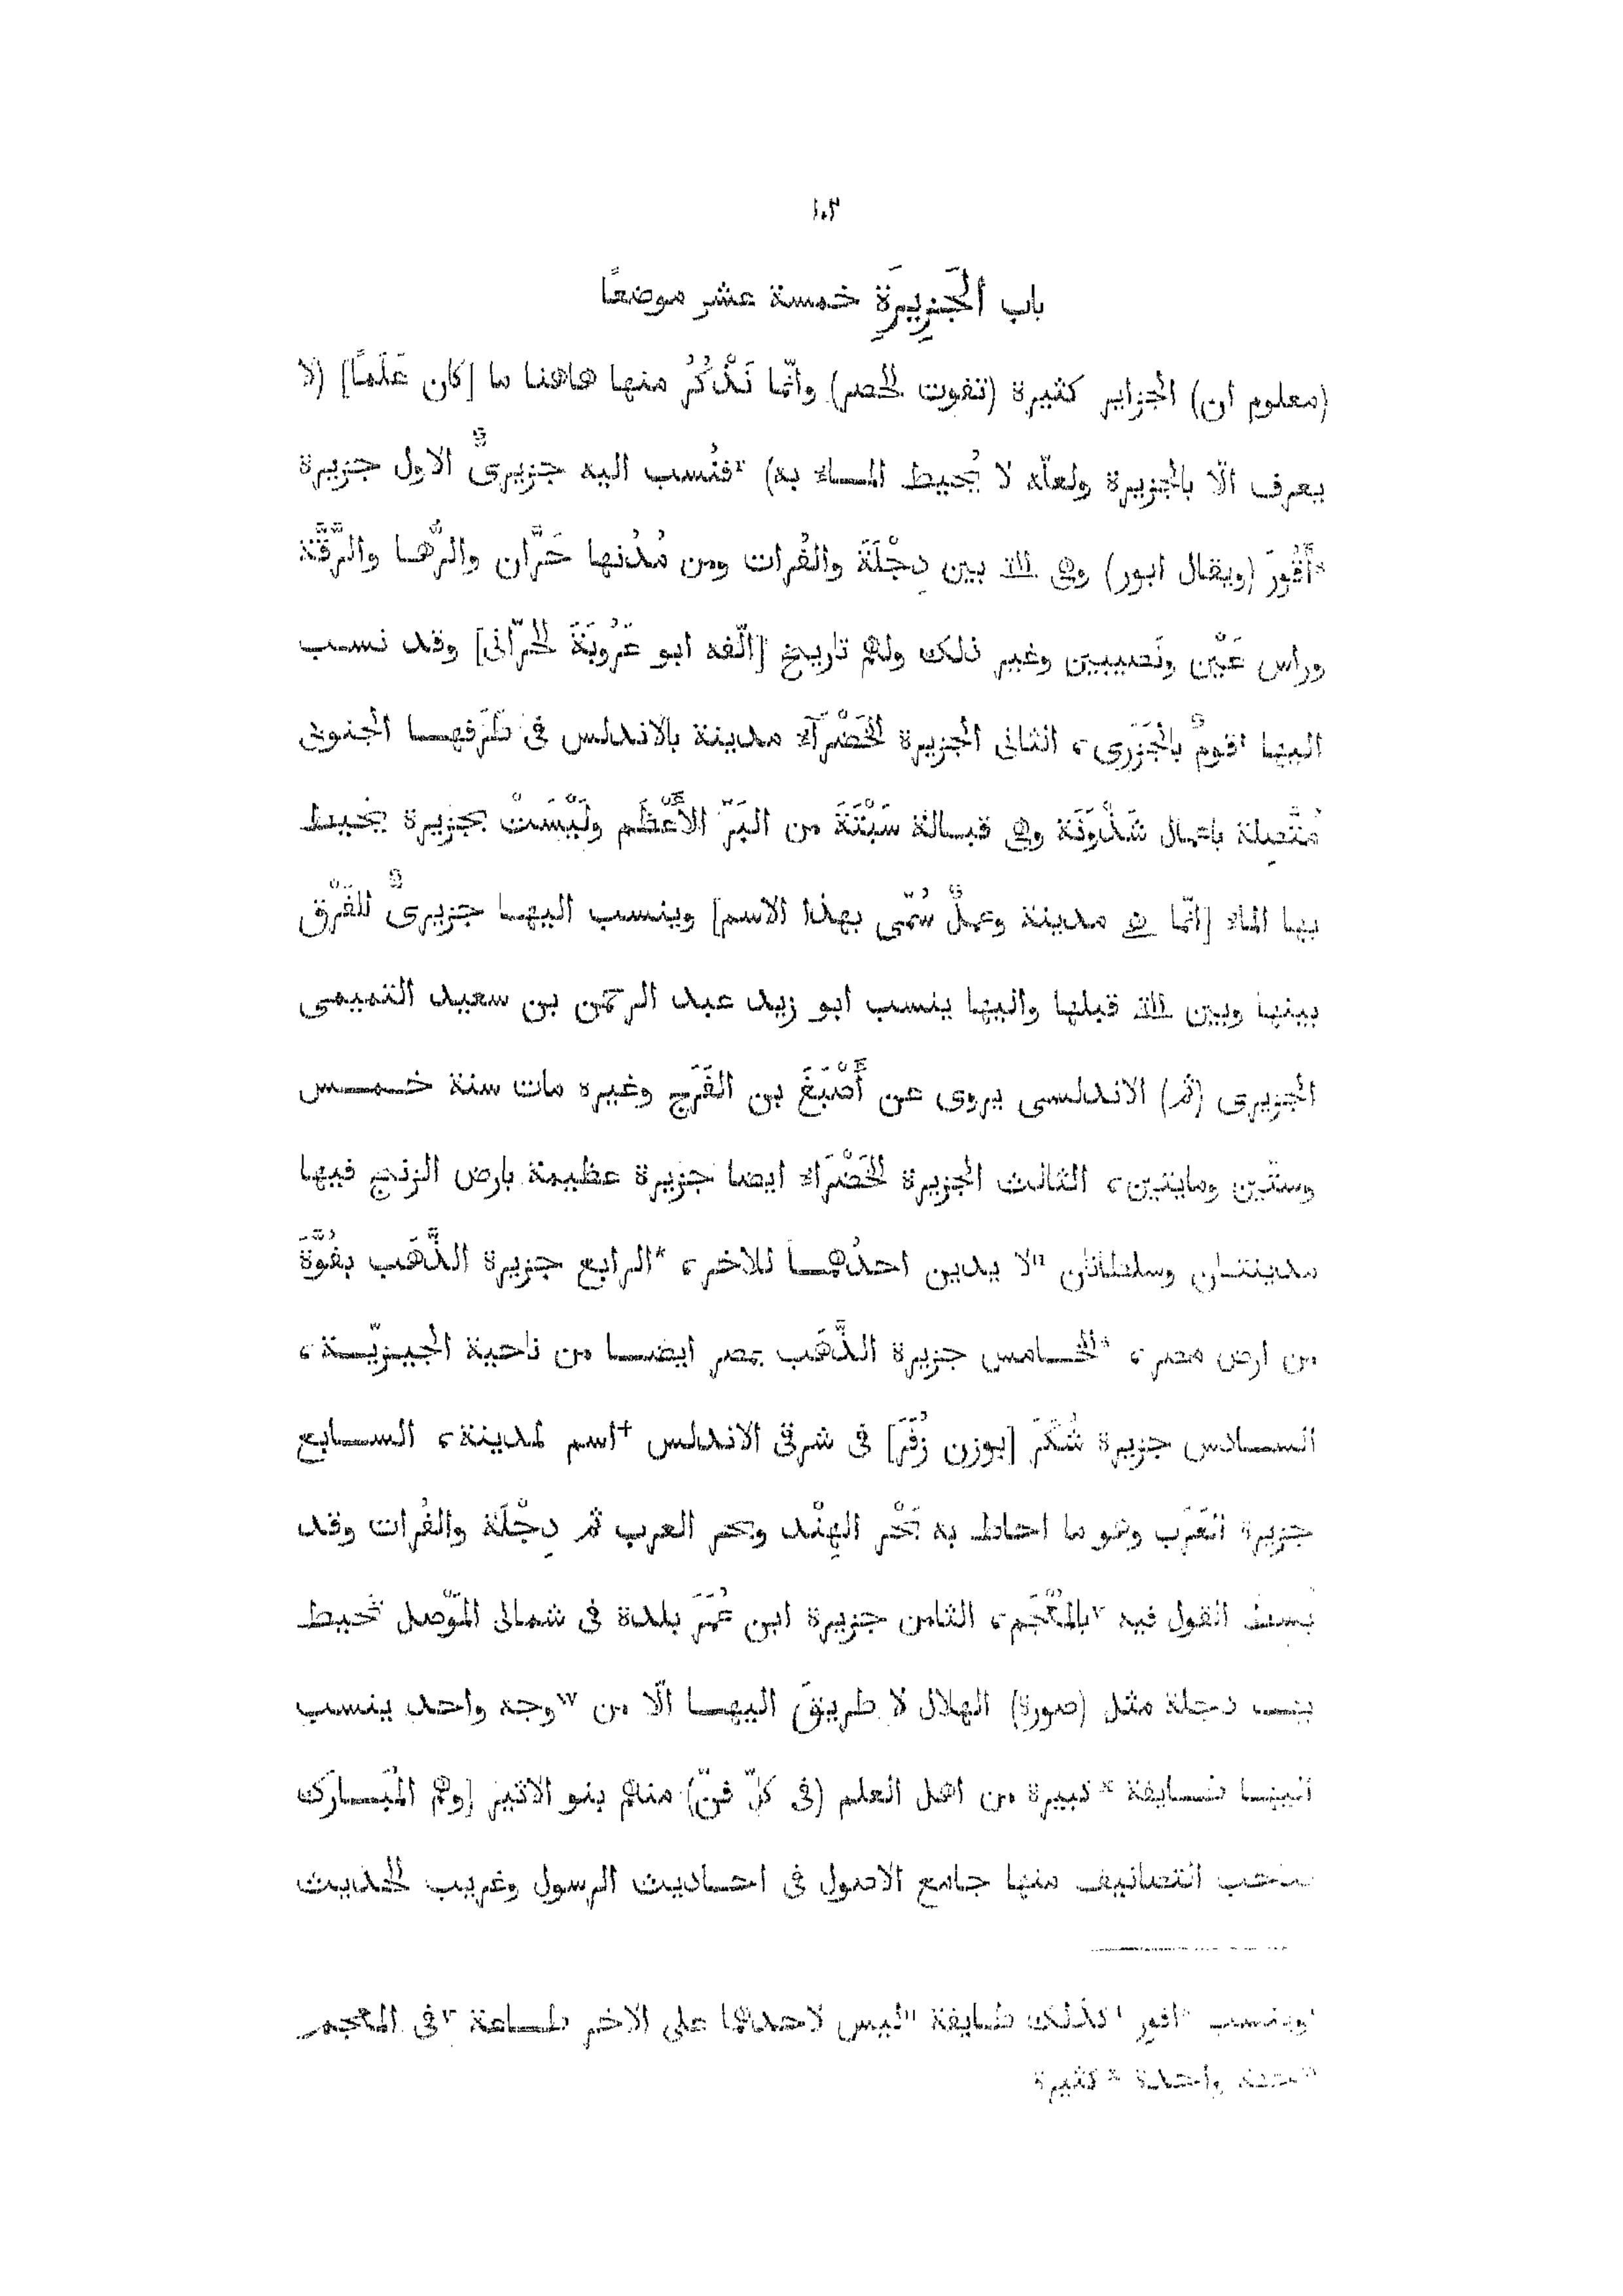 ١٠٣
باب اَلْجَزِيرَةِ خمسة عشر موضعًا
(معلوم ان) الجزاير كثيرة (تفوت الحصر) وانّما نَذْكُرُ منها هاهنا ما [كان عَلَمًا] (لا
يعرف الّا بالجزيرة ولعلّه لا يُحيط المــاء به) فنُسب اليه جزيرىٌّ الاول جزيرة
*أَقُورَ (ويقال ابور) وهى الّتى بين دِجْلَةَ والفُرات ومن مُدُنها حَرَّان والرُّهــا والرَّقَّة
وراس عَيْن ونَصيبين وغير ذلك ولهم تاريخ [الّفه ابو عَرُوبَةَ الحرّانى] وقد نسب
اليها قومٌ بالجَزَرى، الثانى الجزيرة الخَضْرَآء مدينة بالاندلس فى طَرَفهــا الجنوبى
مُتَّصِلة باعمال شَذُونَة وهى قبــالة سَبْتَةَ من البَرّ الأَعْظَم ولَيْسَتْ بجزيرة يحيط
بها الماء [انّما هى مدينة وعملٌ سُمّى بهذا الاسم] وينسب اليهــا جزيرىٌّ للفَرْق
بينها وبين الّتى قبلها واليها ينسب ابو زيد عبد الرحمن بن سعيد التميمى
الجزيرى (ثم) الاندلسى يروى عن أَصْبَغَ بن الفَرَج وغيره مات سنة خــمــس
وستّين ومايتين، الثالث الجزيرة الخَضْرَاء ايضا جزيرة عظيمة بارض الزنج فيها
مدينتــان وسلطانان لا يدين احدُهمــا للاخر، *الرابع جزيرة الذَّهَب بفُوَّةَ
من ارض مصر، *الخــامس جزيرة الذَّهَب بمصر ايضــا من ناحية الجيــزيّــة،
الســادس جزيرة شُكَرَ [بوزن زُفَرَ] فى شرقى الاندلس +اسم لمدينة، الســابع
جزيرة العَرَب وهو ما احاط به بَحْر الهِنْد وبحر العرب ثم دِجْلَة والفُرات وقد
بسط القول فيه بالمُعْجَم، الثامن جزيرة ابن عُمَرَ بلدة فى شمالى المَوْصل تحيط
بهــا دجلة مثل (صورة) الهلال لا طريقَ اليهــا الّا من وجه واحد ينسب
اليهــا طــايفة كبيرة من اهل العلم (فى كلّ فنّ) منهم بنو الاثير [وهم المُبــارك
صاحب التصانيف منها جامع الاصول فى احــاديث الرسول وغريب الحديث
وينسب اقور كذلك طــايفة ليس لاحدهما على الاخر طــاعة فى المعجم
واحدة كثيرة